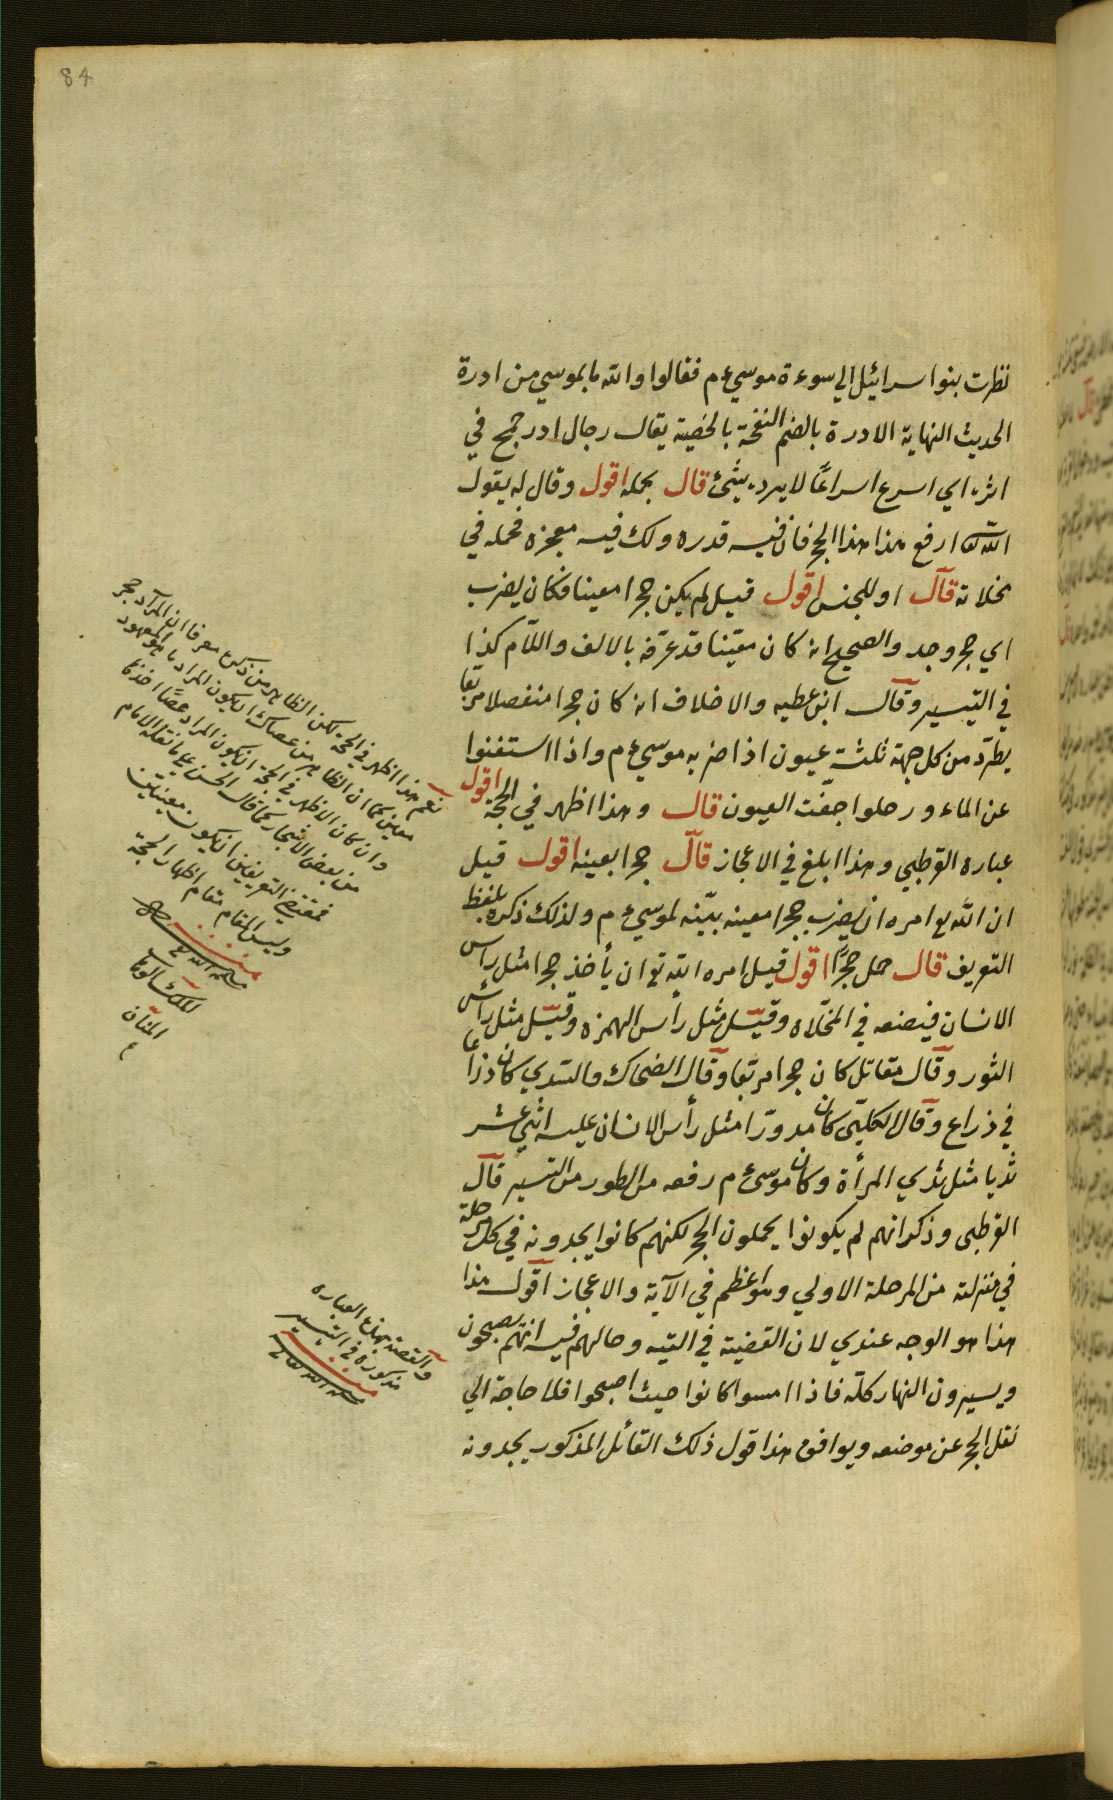 84
نظرت بنوا سرائيل الي سوءة موسي عم فقالوا والله ما بموسي من ادرة
الحديث النهاية الادرة بالضم النفخة بالخصية يقال رجل ادر جمح في
اثره اي اسرع اسراعًا لا يرده شئ قال بحمله اقول وقال له يقول
الله لك ارفع هذا الحجر فان فيه قدره ولك فيه معجزه فحمله في
مخلاته قال او للجنس اقول قيل لم يكن حجرا معينا فكان يضرب
اي حجر وجد والصحيح انه كان معيّنا قد عرّفه بالالف واللام كذا
في التيسير وقال ابن عطيه ولا خلاف انه كان حجرا منفصلا مربّعا
يطرد من كل جهة ثلثة عيون اذا ضربه موسي عم واذا استغنوا
عن الماء ورحلوا جفّت العيون قال وهذا اظهر في الحجة اقول
عباره القرطبي وهذا ابلغ في الاعجاز قال حجرا بعينه اقول قيل
ان الله تع امره ان يضرب حجرا معينه بيّنه لموسي عم ولذلك ذكره بلفظ
التعريف قال حمل حجرًا اقول قيل امره الله تع ان يأخذ حجرا مثل راس
الانسان فيضعه في المخلاه وقيل مثل رأس الهرة وقيل مثل رأس
الثور وقال مقاتل كان حجرا مربّعا وقال الضحاك والسّدي كان ذراعا
في ذراع وقال الكلبى كان مدوّرا مثل رأس الانسان عليه اثني عشر
ثديا مثل ثدي المرأة وكان موسى عم رفعه من الطور من التسير قال
القرطبى وذكر انهم لم يكونوا يحملون الحجر لكنهم كانوا يجدونه في كل مرحلة
في منزلته من المرحلة الاولي وهو اعظم في الآية والاعجاز اقول هذا
هذا هو الوجه عندي لان القضية في التيه وحالهم فيه انهم يصبحون
ويسيرون النهار كلّه فاذا امسوا كانوا حيث اصبحوا فلا حاجة الي
نقل الحجر عن موضعه ويوافق هذا قول ذلك القائل المذكور يجدونه
نعم هذا اظهر في الحجة لكن الظاهر من ذكره معرفا ان المراد حجر
معين كما ان الظاهر من عصاك ان يكون المراد ما هو المعهود
وان كان الاظهر في الحجة ان يكون المراد عصًا اخذها
من بعض الاشجار كما قال الحسن على ما نقله الامام
فمقتضي التعريفين ان يكون معينتين
وليس المقام مقام اظهار الحجة
منه
سلمه الله تع
الملك الوهاب
المنان
والقصة بهذه العباره
مذكورة في التيسير
منه
سلمه الله تعالى